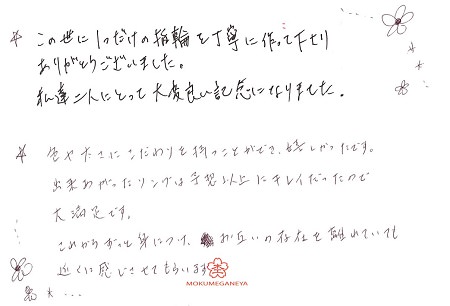 この世に1つだけの指輪を丁寧に作って下さり
ありがとうございました。
私達二人にとって大変良い記念になりました。
色や太さにこだわりを持つことができ、嬉しかったです。
出来あがったリングは予想以上にキレイだったので
大満足です。
これからずっと身につけ、お互いの存在を離れていても
近くに感じさせてもらいます
MOKUMEGANEYA